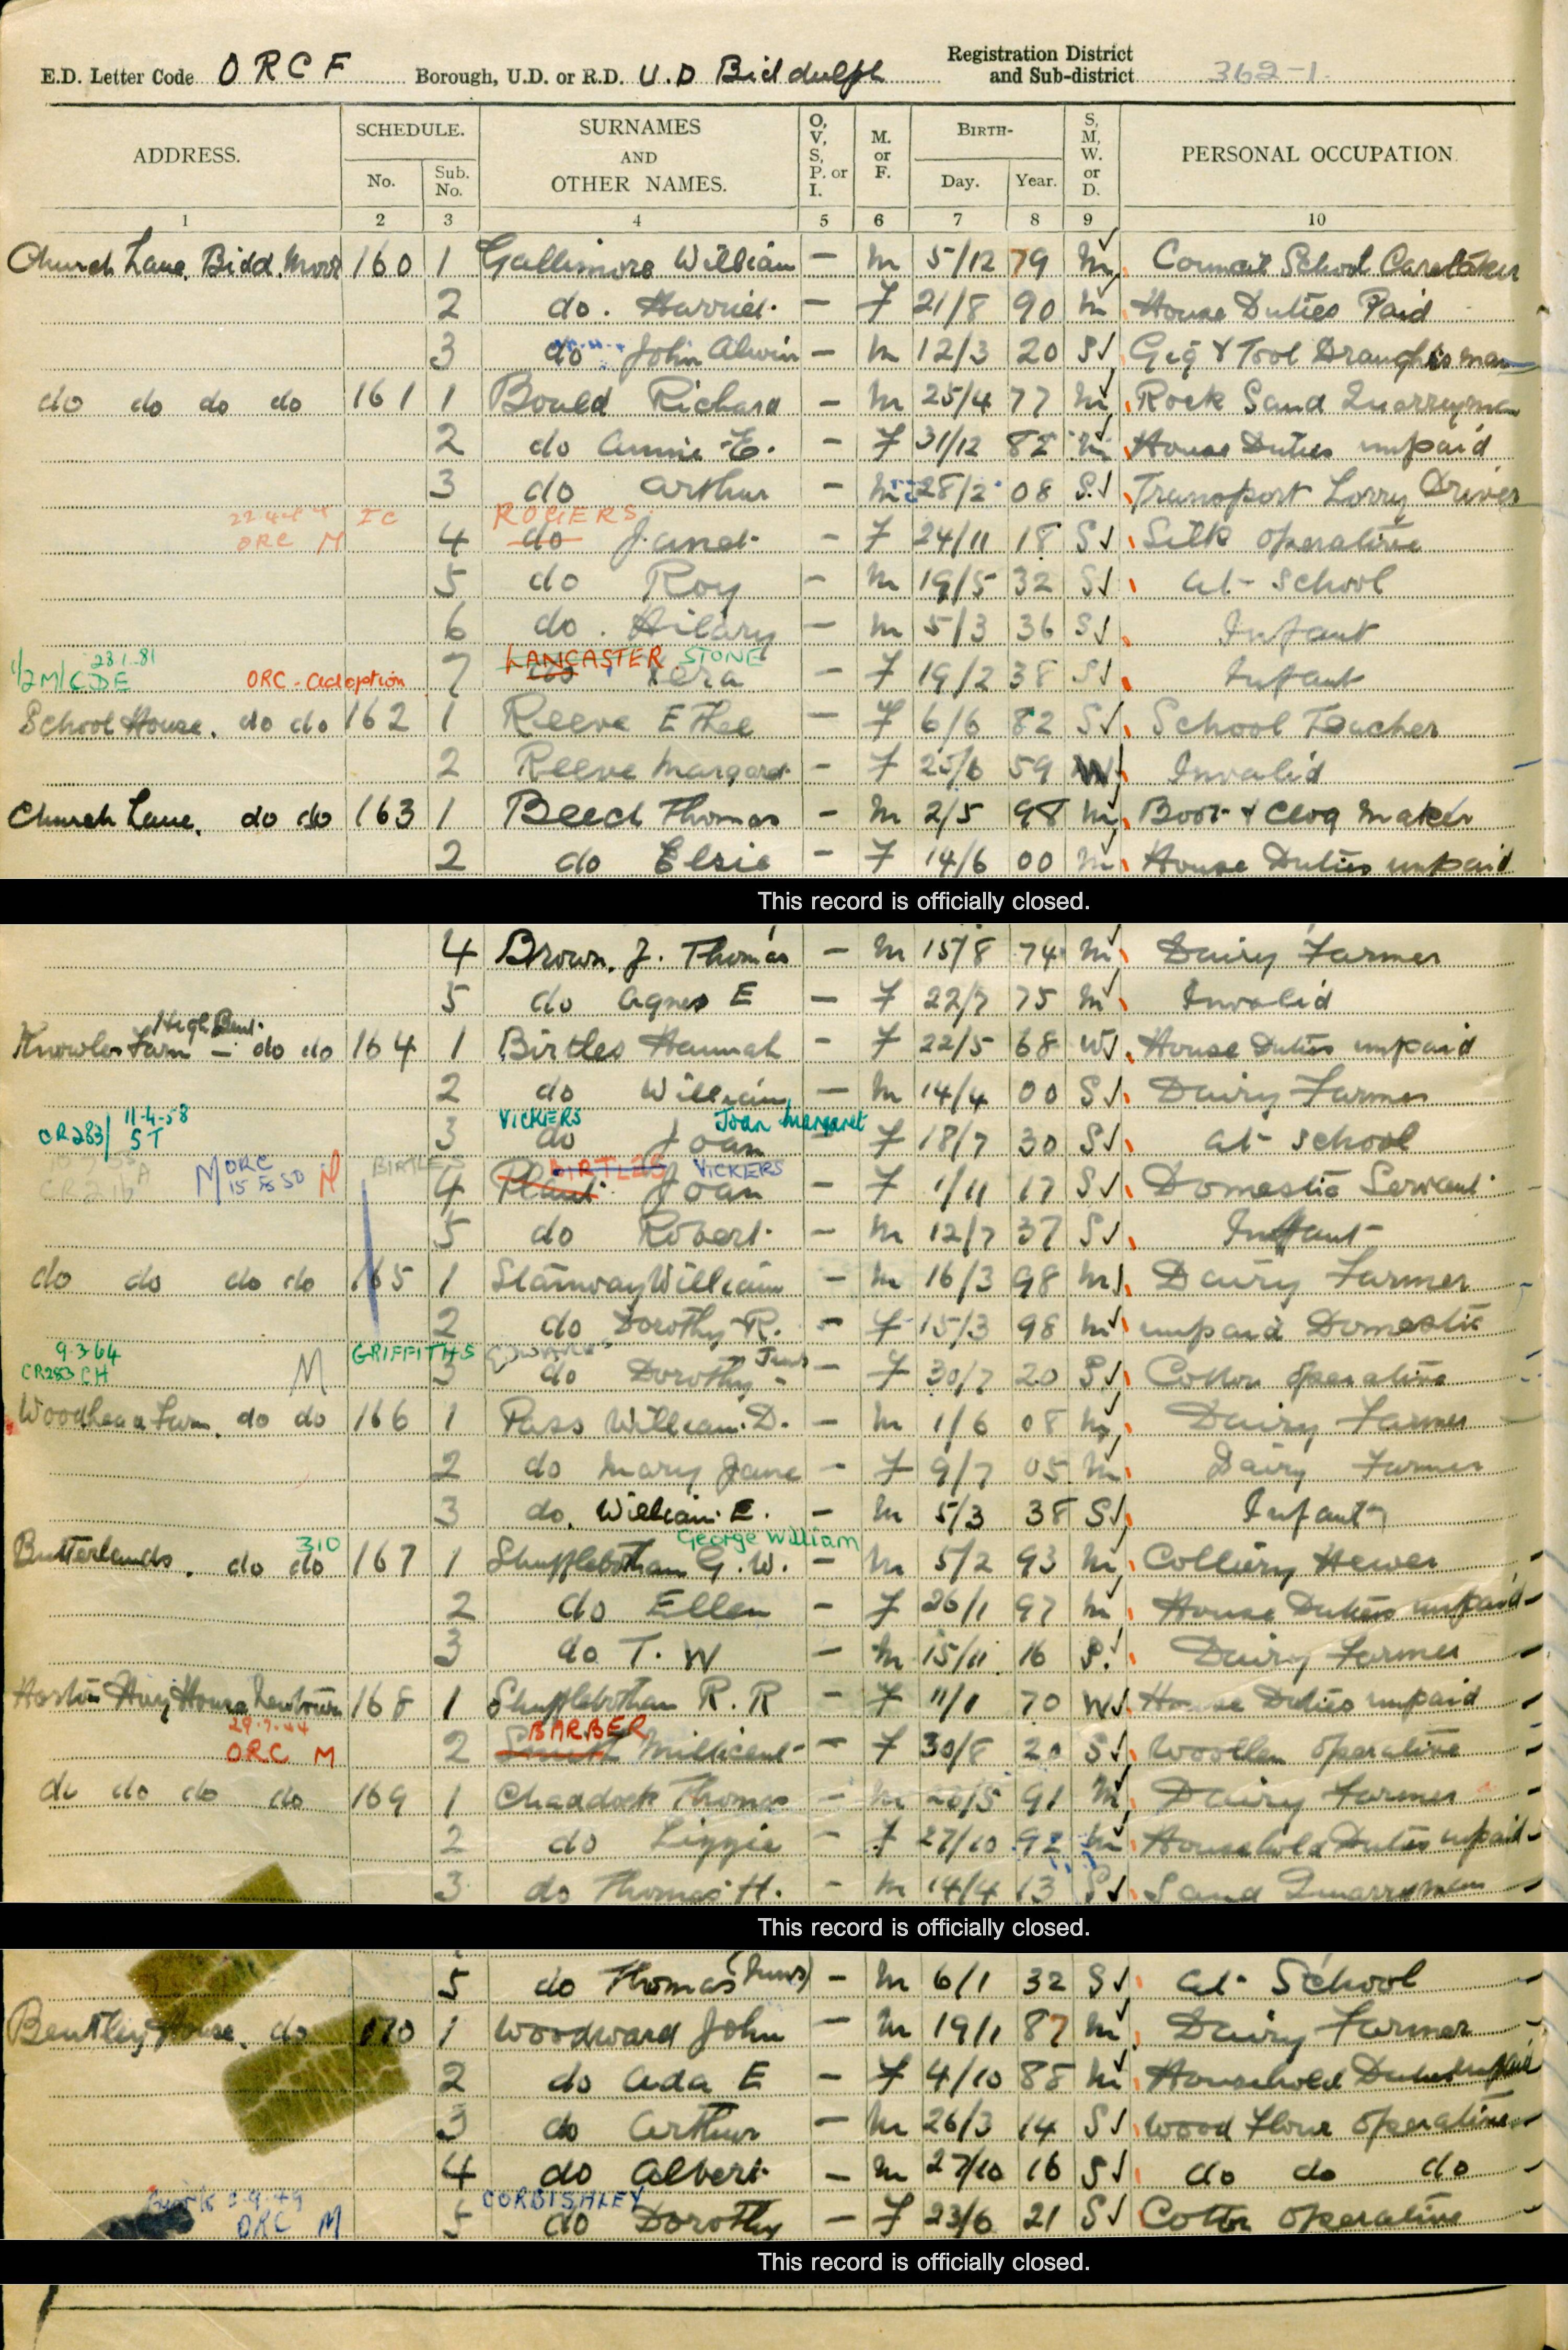 E.D. Letter Code ORCF Borough, U.D. or R.D. U.D Biddulph Registration District and Sub-district 362-1
ADDRESS. SCHEDULE. No. Sub. No. SURNAMES AND OTHER NAMES. O, V, S, P. or I. M. or F. BIRTH- Day. Year. S, M, W. or D. PERSONAL OCCUPATION.
1 2 3 4 5 6 7 8 9 10
Church Lane, Bidd. Moor 160 1 Gallimore William - M 5/12 79 M Council School Caretaker
2 do. Harriet - F 21/8 90 M House Duties Paid
3 do John Alwin - M 12/3 20 S Gig & Tool Draughtsman
do do do do 161 1 Bould Richard - M 25/4 77 M Rock Sand Quarryman
2 do Annie E. - F 31/12 82 M House Duties unpaid
3 do Arthur - M 28/2 08 S Transport Lorry Driver
ORC M ROGERS
4 do Janet - F 24/11 18 S Silk operative
5 do Roy - M 19/5 32 S at school
6 do. Hilary - M 5/3 36 S Infant
23.1.81 LANCASTER STONE
ORC - adoption 7 do - F 19/2 38 S Infant
School House, do do 162 1 Reeve Ethel - F 6/6 82 S School Teacher
2 Reeve Margaret - F 25/6 59 W Invalid
Church Lane, do do 163 1 Beech Thomas - M 2/5 98 M Boot & Clog Maker
2 do Elsie - F 14/6 00 M House Duties unpaid
This record is officially closed.
4 Brown, J. Thomas - M 15/8 74 M Dairy Farmer
5 do Agnes E - F 22/7 75 M Invalid
High Bent
Knowles Farm - do do 164 1 Birtles Hannah - F 22/5 68 W House Duties unpaid
2 do William - M 14/4 00 S Dairy Farmer
11-4-58 VICKERS Joan Margaret
CR283/ ST 3 do Joan - F 18/7 30 S at school
M ORC BIRTLES BIRTLES VICKERS
4 Plant Joan - F 1/11 17 S Domestic Servant
5 do Robert - M 12/7 37 S Infant
do do do do 165 1 Stanway William - M 16/3 98 M Dairy Farmer
2 do Dorothy R. - F 15/3 98 M unpaid Domestic
9.3.64 GRIFFITHS
CR283 CH M 3 do Dorothy Junr - F 30/7 20 S Cotton operative
Woodhead Farm, do do 166 1 Pass William D. - M 1/6 08 M Dairy Farmer
2 do Mary Jane - F 9/7 05 M Dairy Farmer
3 do. William E. - M 5/3 38 S Infant
310 George William
Butterlands, do do 167 1 Shufflebotham G. W. - M 5/2 93 M Colliery Hewer
2 do Ellen - F 26/1 97 M House Duties unpaid
3 do T. W - M 15/11 16 S. Dairy Farmer
Hay House Newtown 168 1 Shufflebotham R. R - F 11/1 70 W House Duties unpaid
29.7.44 BARBER
ORC M 2 Millicent - F 30/8 20 S Woollen operative
do do do do 169 1 Chaddock Thomas - M 20/5 91 M Dairy Farmer
2 do Lizzie - F 27/10 92 M Household Duties unpaid
3 do Thomas H. - M 14/4 13 S Sand Quarryman
This record is officially closed.
5 do Thomas (Junr) - M 6/1 32 S at School
Bentley House, do 170 1 Woodward John - M 19/1 87 M Dairy Farmer
2 do Ada E - F 4/10 88 M Household Duties unpaid
3 do Arthur - M 26/3 14 S Wood Flour operative
4 do Albert - M 27/10 16 S do do do
CORBISHLEY
ORC M 5 do Dorothy - F 23/6 21 S Cotton operative
This record is officially closed.